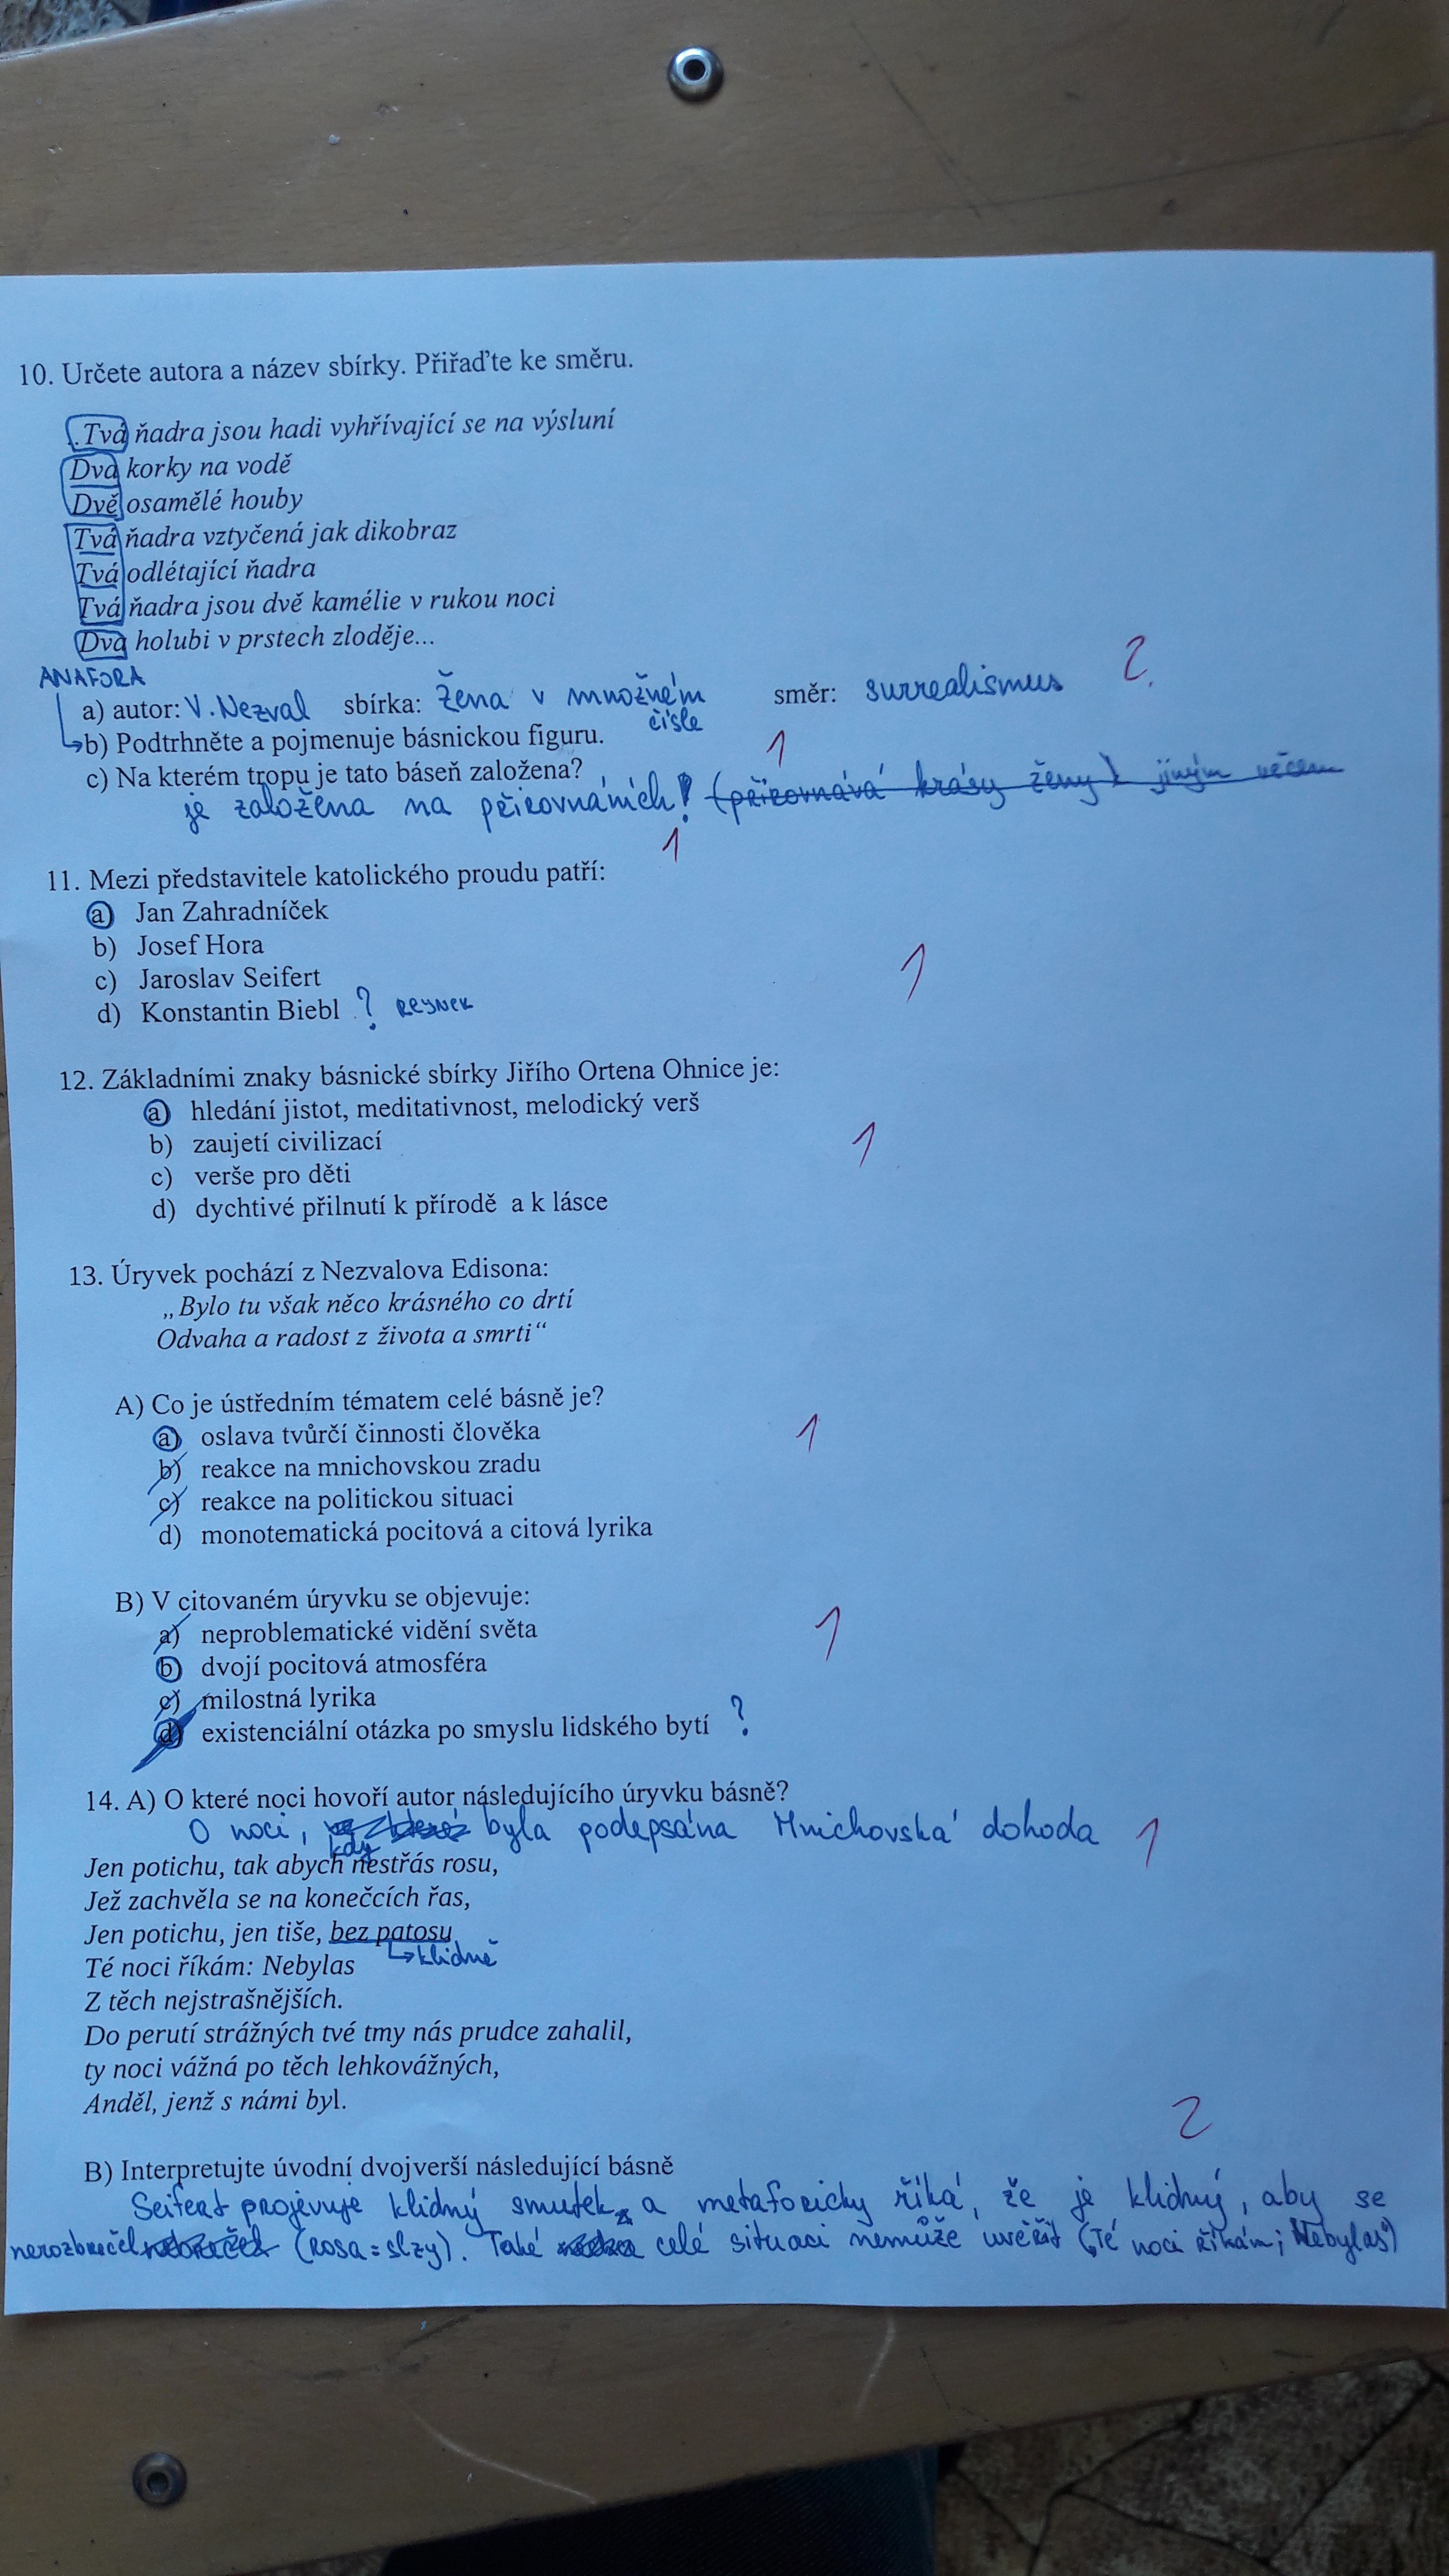 10. Určete autora a název sbírky. Přiřaďte ke směru.
..Tvá ňadra jsou hadi vyhřívající se na výsluní
Dva korky na vodě
Dvě osamělé houby
Tvá ňadra vztyčená jak dikobraz
Tvá odlétající ňadra
Tvá ňadra jsou dvě kamélie v rukou noci
Dva holubi v prstech zloděje...
ANAFORA
2
a) autor: V. Nezval sbírka: Žena v množném směr: surrealismus
čísle
b) Podtrhněte a pojmenuje básnickou figuru.
1
c) Na kterém tropu je tato báseň založena?
je založena na přirovnáních! (přirovnává krásy ženy k jiným věcem
1
11. Mezi představitele katolického proudu patří:
a) Jan Zahradníček
b) Josef Hora
c) Jaroslav Seifert
1
d) Konstantin Biebl ? REYNEK
12. Základními znaky básnické sbírky Jiřího Ortena Ohnice je:
a) hledání jistot, meditativnost, melodický verš
b) zaujetí civilizací
1
c) verše pro děti
d) dychtivé přilnutí k přírodě a k lásce
13. Úryvek pochází z Nezvalova Edisona:
„Bylo tu však něco krásného co drtí
Odvaha a radost z života a smrti“
A) Co je ústředním tématem celé básně je?
a) oslava tvůrčí činnosti člověka
1
b) reakce na mnichovskou zradu
c) reakce na politickou situaci
d) monotematická pocitová a citová lyrika
B) V citovaném úryvku se objevuje:
a) neproblematické vidění světa
1
b) dvojí pocitová atmosféra
c) milostná lyrika
d) existenciální otázka po smyslu lidského bytí ?
14. A) O které noci hovoří autor následujícího úryvku básně?
O noci, byla podepsána Mnichovská dohoda 1
kdy
Jen potichu, tak abych nestřás rosu,
Jež zachvěla se na konečcích řas,
Jen potichu, jen tiše, bez patosu
klidně
Té noci říkám: Nebylas
Z těch nejstrašnějších.
Do perutí strážných tvé tmy nás prudce zahalil,
ty noci vážná po těch lehkovážných,
Anděl, jenž s námi byl.
2
B) Interpretujte úvodní dvojverší následující básně
Seifert projevuje klidný smutek a metaforicky říká, že je klidný, aby se
nerozbrečel (rosa = slzy). Také celé situaci nemůže uvěřit („Té noci říkám; Nebylas“)